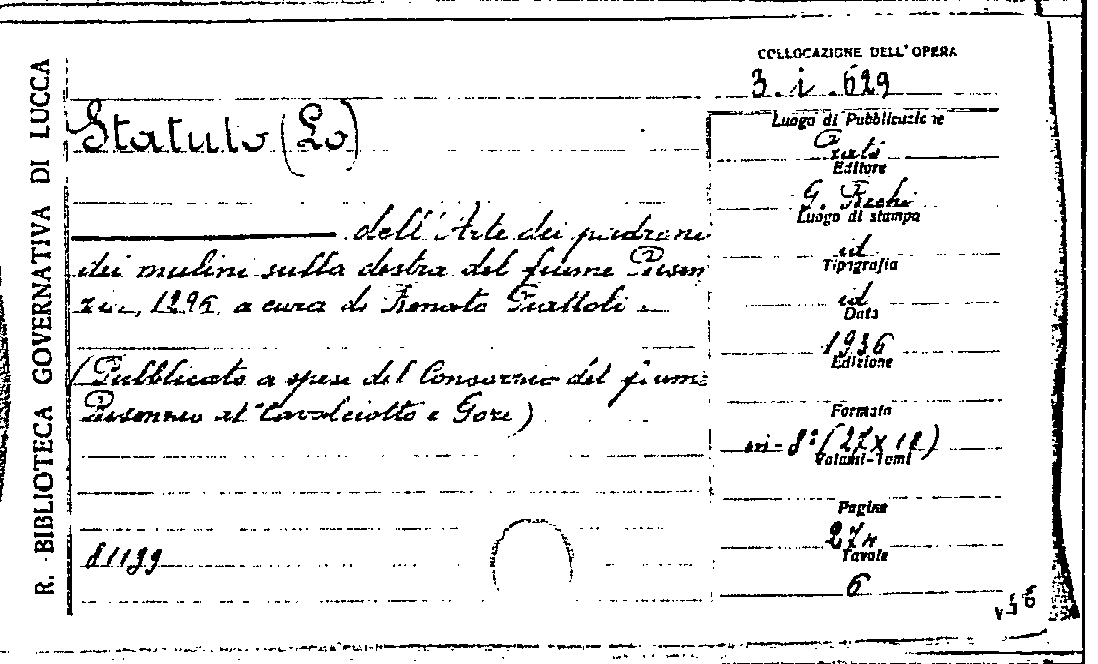 R. BIBLIOTECA GOVERNATIVA DI LUCCA
COLLOCAZIONE DELL'OPERA
3. i. 629
Statuto (Lo)
dell'Arte dei padroni
dei mulini sulla destra del fiume Bisen
zio, 1296 a cura di Renato Piattoli
(Pubblicato a spese del Consorzio del fiume
Bisenzio al Cavalciotto e Gore)
81199
Luogo di Pubblicazione
Prato
Editore
G.
Luogo di stampa
id
Tipografia
id
Data
1936
Edizione
Formato
in-8° (27x18)
Volumi-Tomi
Pagine
Tavole
6